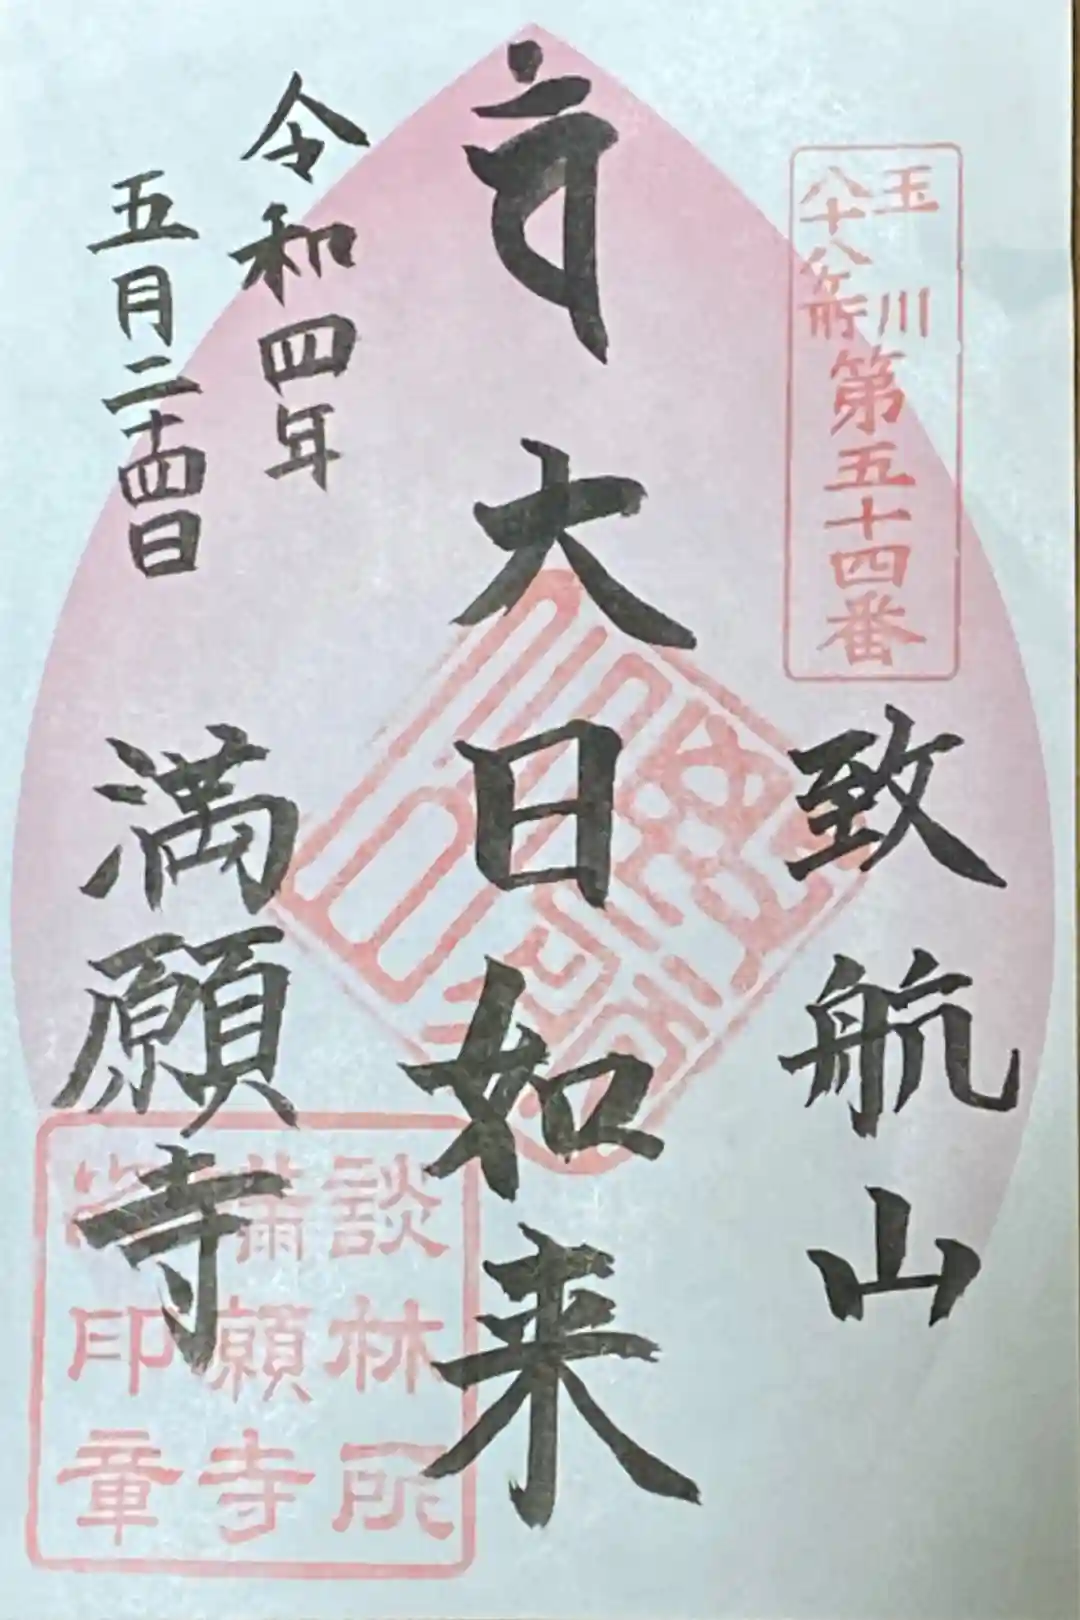 玉川
八十八ヶ所
第五十四番
致航山
大日如来
令和四年
五月二十四日
満願寺
談林所
満願寺
印章